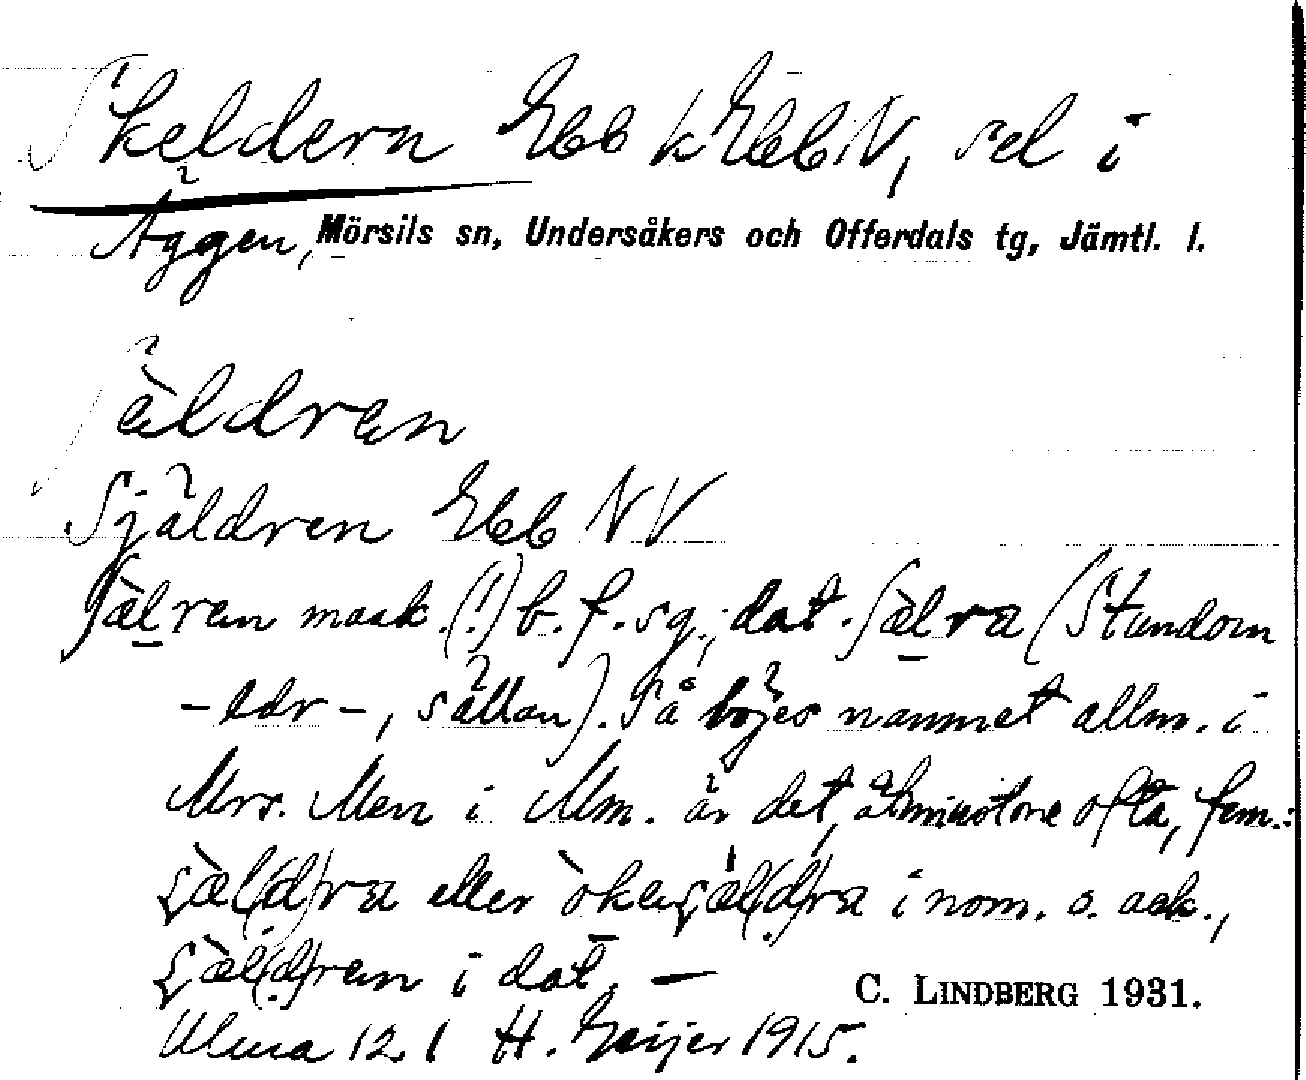 Skeldern Ebb k Ebb NV, sel i
Äggen, Mörsils sn, Undersåkers och Offerdals tg, Jämtl. l.
ʃæ̀ldræn
Själdren Ebb NV
ʃæ̀lræn mask. (!) b. f. sg.; dat. ʃæ̀lra (Stundom
-ldr-, sällan). Så böjes namnet allm. i
Mrs. Men i Mm. är det, åtminstone ofta, fem.:
ʂæ̀l(d)ra eller òkaʂæ̀l(d)ra i nom. o. ack.,
ʂæ̀l(d)ræn i dat. —
C. LINDBERG 1931.
Ulma 12 1 H. Geijer 1915.